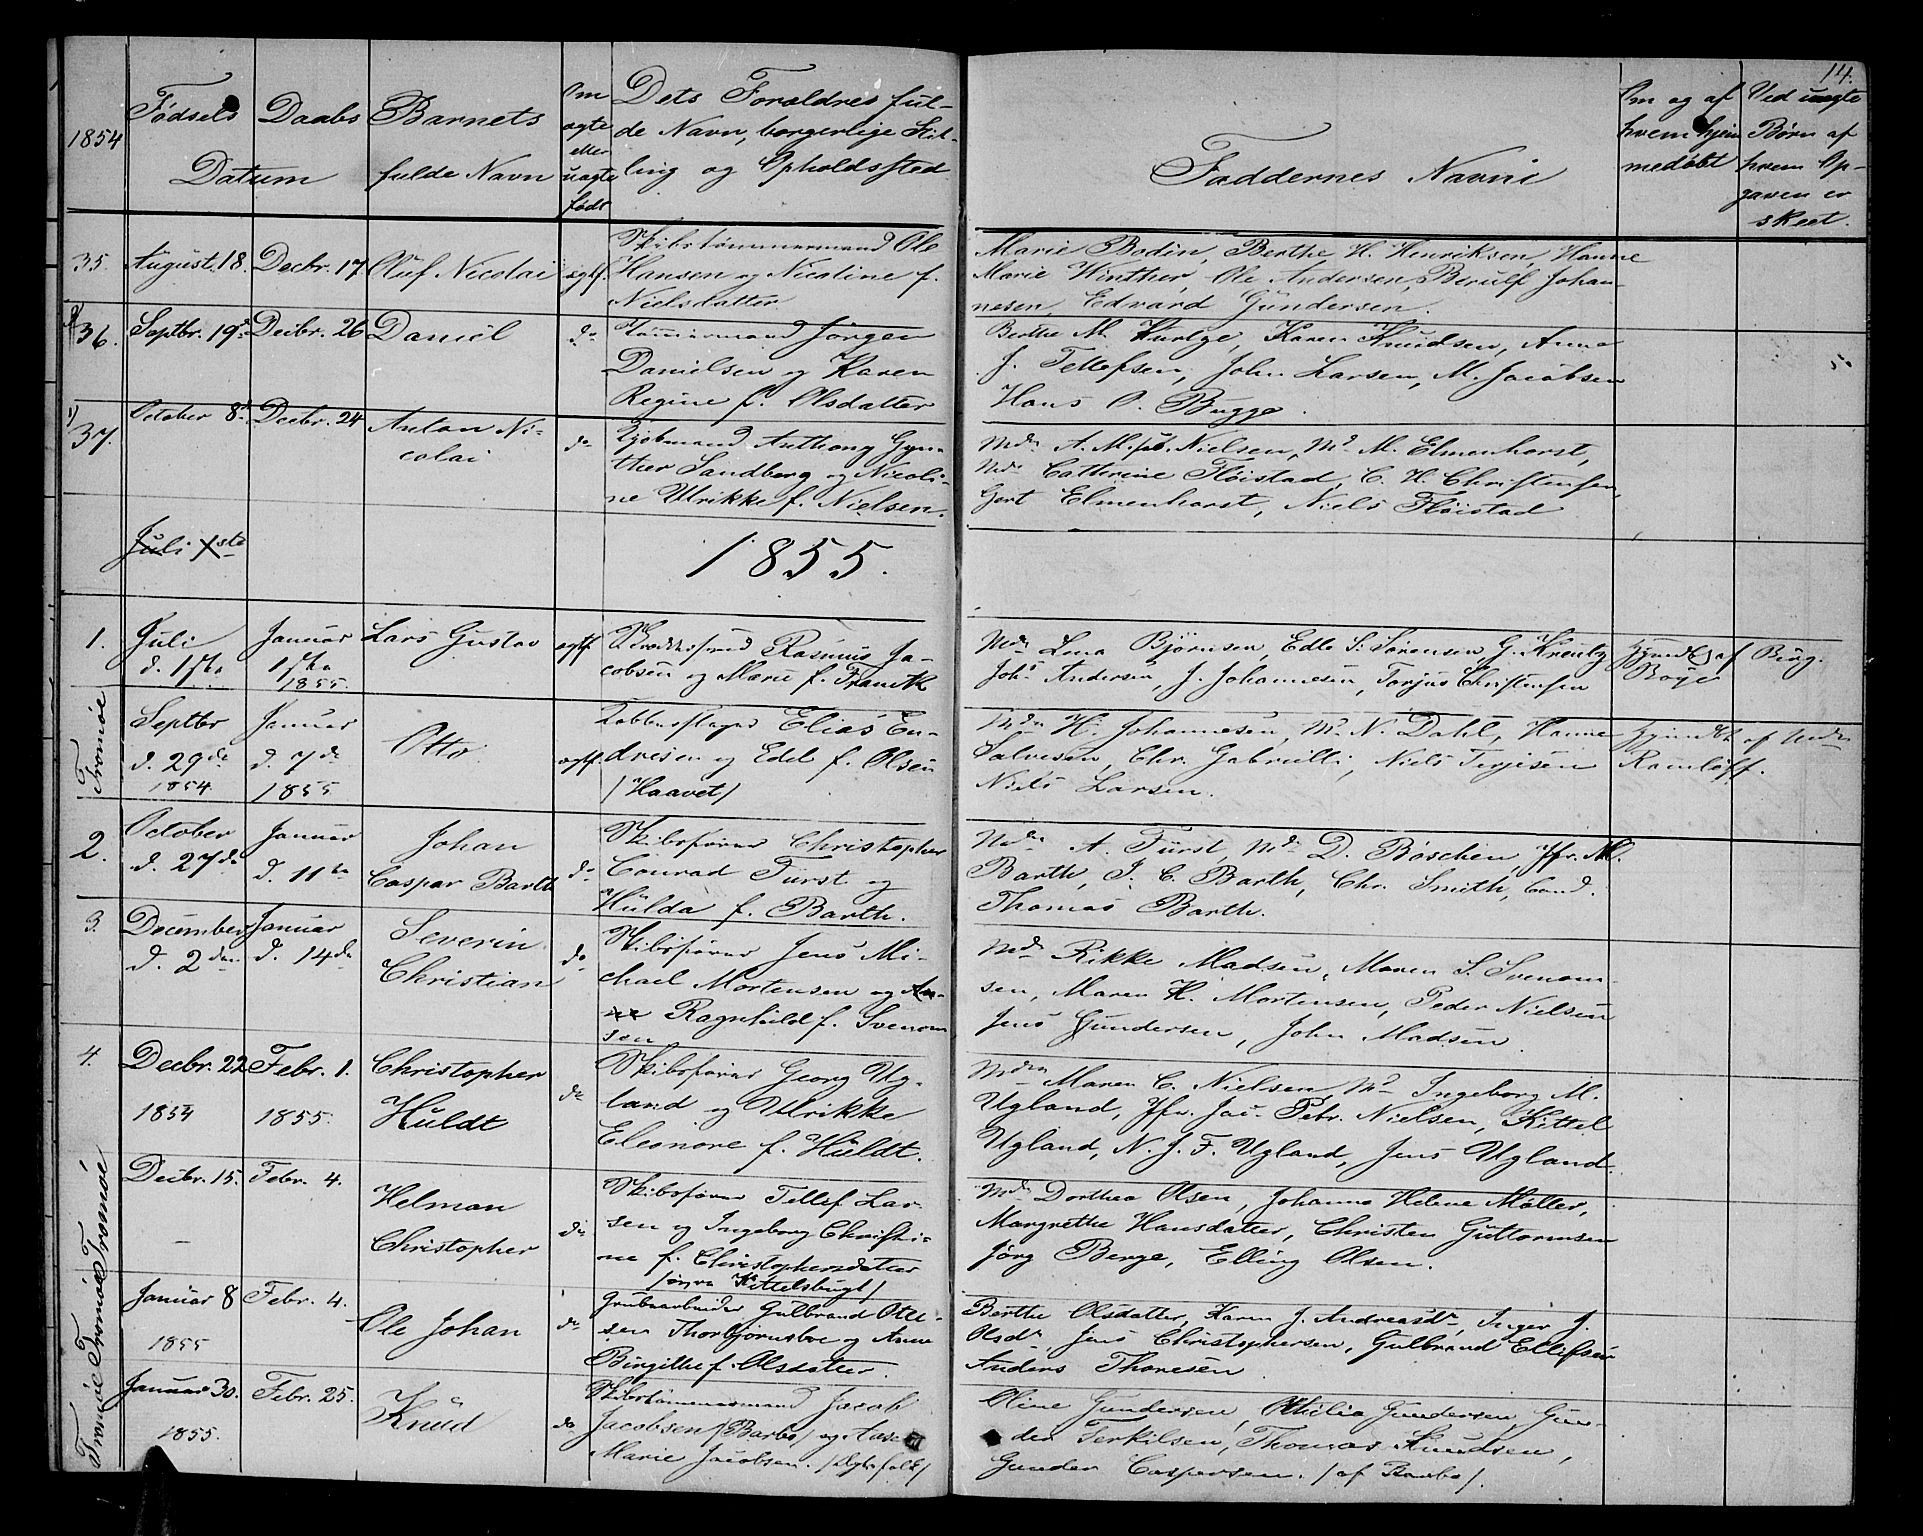 14.
1854
Fødsels
Daabs
Datum
Barnets
fulde Navn
Om
ægte
eller
uægte
født
Dets Forældres ful-
de Navn, borgerlige Stil-
ling og Opholdssted
Faddernes Navne
Om og af
hvem hjem
medøbt
Ved uægte
Børn af
hvem Op-
gaven er
skeet.
35. August. 18. Decbr. 17 Oluf Nicolai ægtf.
Skibstømmermand Ole
Hansen og Nicoline f.
Nielsdatter
Marie Bodin, Berthe H. Henriksen, Hanne
Marie Winther, Ole Andersen, Berulf Johan-
nesen, Edvard Gundersen.
36. Septbr. 19de Decbr. 26 Daniel do
Tømmermand Jørgen
Danielsen og Karen
Regine f. Olsdatter
Berthe M. Karen Knudsen, Anne
J. Tellefsen, John Larsen, M. Jacobsen
Hans O. Bugge.
37. October 8de Decbr. 24 Anton Ni-
colai do
Kjøbmand Anthony Gyn-
ther Sandberg og Nicoli-
ne Ulrikke f. Nielsen.
Mdm A. M. Nielsen, Md M. Elmenhorst,
Mdm Cathrine Fløistad, C. H. Christensen,
Gert Elmenhorst, Niels Fløistad
Juli 1ste
1855.
1. Juli
d. 1ste
Januar
1ste
1855.
Lars Gustav ægtf.
Rasmus Ja-
cobsen og Marie f. Franck
Mdm Lena Bjørnsen, Edle S. Sørensen, G. Kreutz
Johs Andersen, J. Johannesen, Torjus Christensen
hjemdbt af Berg.
Tromøe
Septbr
d. 29de
1854
Januar
d. 7de
1855
Otto ægtf.
Elias En-
dresen og Edel f. Olsen
/Haavet/
Mdm H. Johannesen, Md N. Dahl, Hanne
Salvesen, Chr. Gabrielli, Niels Terjesen
Niels Larsen.
hjemdbt af Mdm
Ramløff.
2. October
d. 27de
Januar
d. 11te
Johan
Caspar Barth do
Skibsfører Christopher
Conrad Fürst og
Hulda f. Barth.
Mdm A. Fürst, Mdm D. Böschen Jfr. M.
Barth, J. C. Barth, Chr. Smith, Cand.
Thomas Barth.
3. December
d. 2den
Januar
d. 14de
Severin
Christian do
Skibsfører Jens Mi-
chael Mortensen og An-
ne Ragnhild f. Svenom
sen
Mdm Rikke Madsen, Maren S. Svenom-
sen, Maren K. Mortensen, Peder Nielsen
Jens Gundersen, John Madsen.
4. Decbr. 22
1854
Febr. 1.
1855.
Christopher
Huldt do
Skibsfører Georg Ug-
land og Ulrikke
Eleonore f. Huldt.
Mdm Maren C. Nielsen, Md Ingeborg M.
Ugland, Jfr. Jac. Petr. Nielsen, Kittel
Ugland, N. J. F. Ugland, Jens Ugland.
Tromøe
Decbr. 15. Febr. 4.
Helman
Christopher do
Skibsfører Tellef Lar-
sen og Ingeborg Christi-
ne f. Christophersdatter
/øvre Kittelsbugt/
Md Dorthea Olsen, Johanne Helene Møller,
Margrethe Hansdatter, Christen Guttormsen
Jørg Berge, Elling Olsen.
Tromøe
Januar 8
1855
Febr. 4.
Ole Johan do
Grubearbeider Gulbrand Ole-
sen Thorbjørnsbo og Anne
Birgitte f. Olsdatter.
Berthe Olsdatter, Karen J. Andreasdr, Inger J.
Olsdr, Jens Christophersen, Gulbrand Ellifsen
Anders Thoresen
Tromøe
Januar 30.
1855.
Febr. 25.
Knud do
Skibstømmermand Jacob
Jacobsen /Barbo/ og Aase
Marie Jacobsen.
Oline Gundersen, Othilia Gundersen, Gun-
der Terkilsen, Thomas Knudsen,
Gunder Caspersen. /af Barbo/.